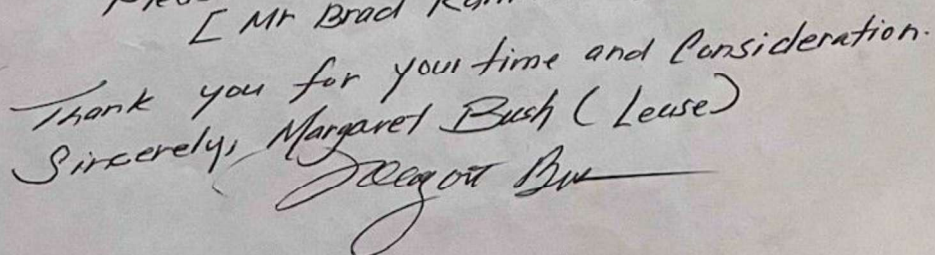 [ Mr Brad
Thank you for your time and Consideration.
Sincerely, Margaret Bush (Lease)